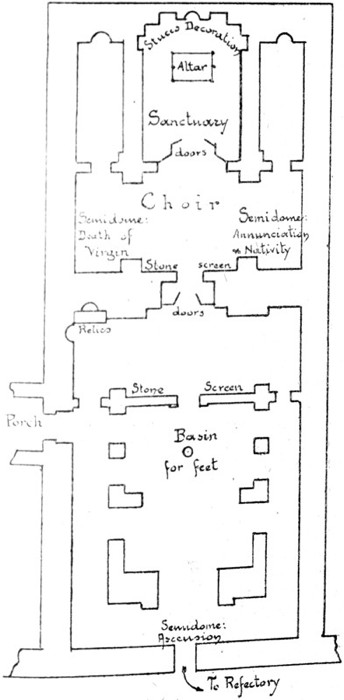 Stucco Decoration
Altar
Sanctuary
doors
Choir
Semidome:
Death of
Virgin
Semidome:
Annunciation
& Nativity
Stone screen
doors
Relics
Stone Screen
Porch
Basin
for feet
Semidome:
Ascension
To Refectory